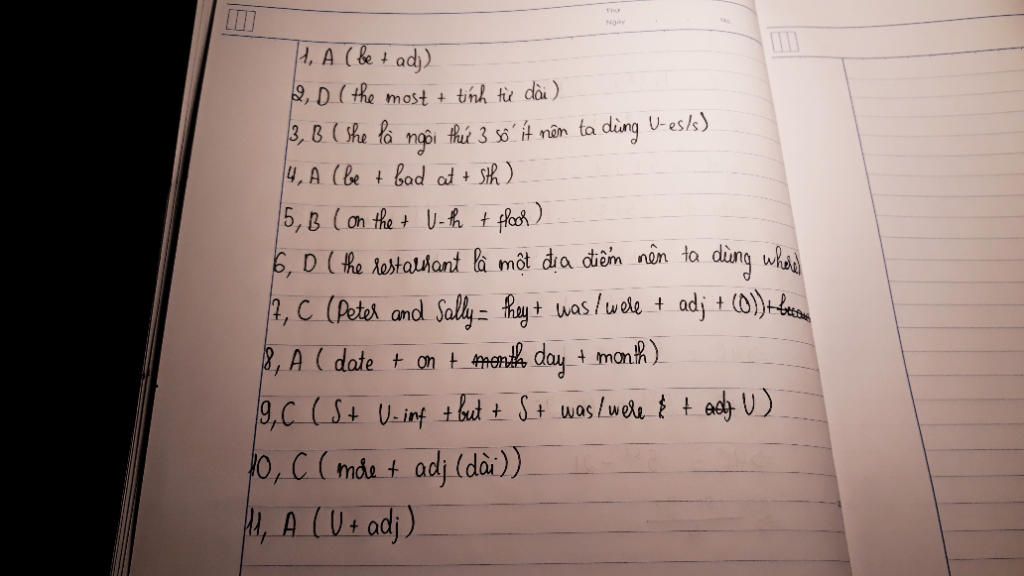 Thứ
Ngày
No.
1, A (be + adj)
2, D (the most + tính từ dài)
3, B (she là ngôi thứ 3 số ít nên ta dùng V-es/s)
4, A (be + bad at + sth)
5, B (on the + V-th + floor)
6, D (the restaurant là một địa điểm nên ta dùng where)
7, C (Peter and Sally = they + was/were + adj + (O)) + becau
8, A (date + on + month day + month)
9, C (S + V-inf + but + S + was/were & + adj V)
10, C (more + adj (dài))
11, A (V + adj)